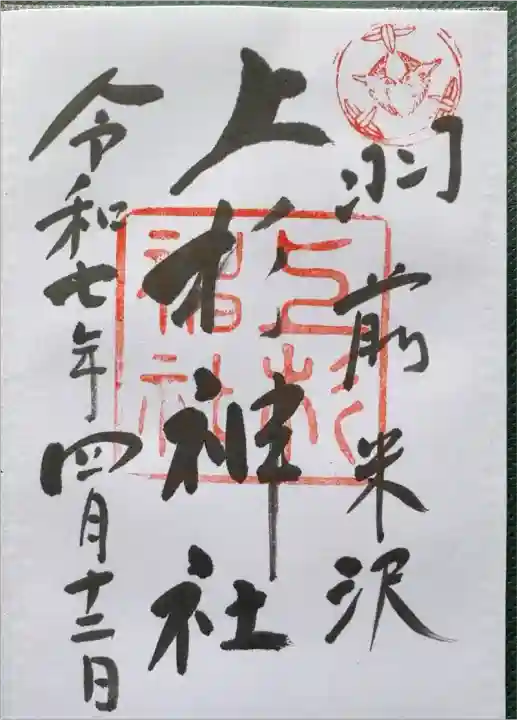 羽前米沢
上杉神社
上杉神社
令和七年四月十二日